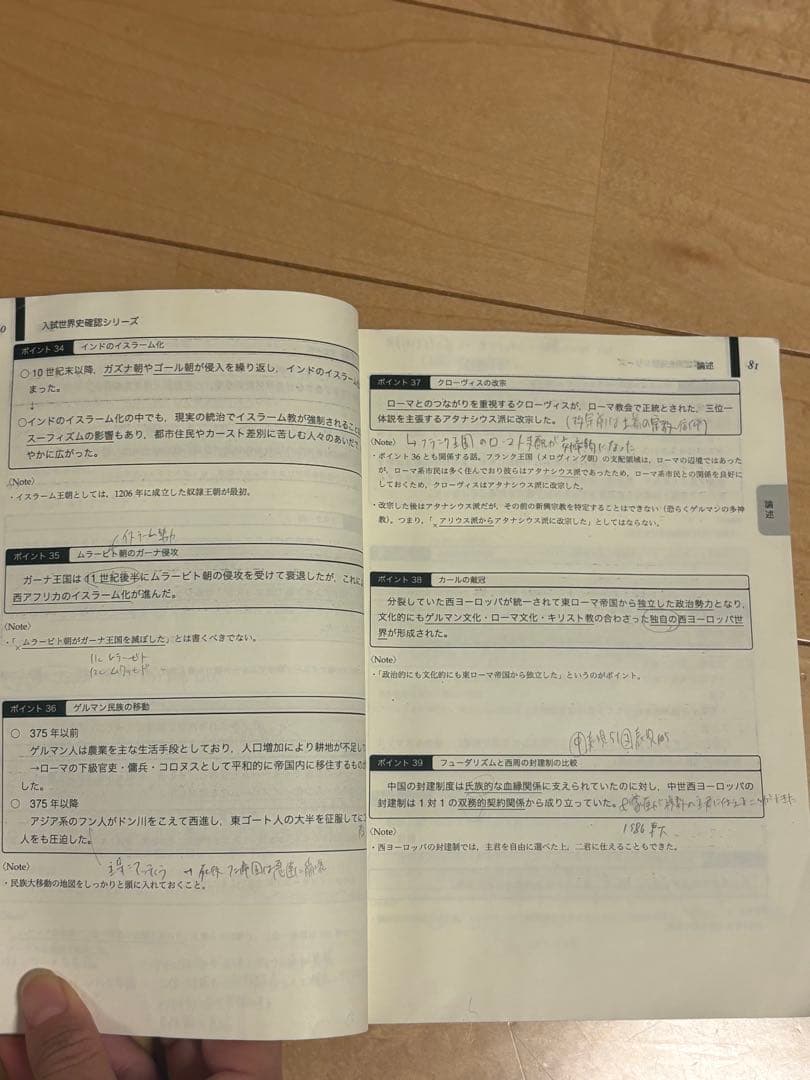 入試世界史確認シリーズ
ポイント34 インドのイスラーム化
○10世紀末以降，ガズナ朝やゴール朝が侵入を繰り返し，インドのイスラーム
まった。
↓
○インドのイスラーム化の中でも，現実の統治でイスラーム教が強制されること
スーフィズムの影響もあり，都市住民やカースト差別に苦しむ人々のあいだ
やかに広がった。
〈Note〉
・イスラーム王朝としては，1206年に成立した奴隷王朝が最初。
イスラーム勢力
ポイント35 ムラービト朝のガーナ侵攻
ガーナ王国は11世紀後半にムラービト朝の侵攻を受けて衰退したが，これに
西アフリカのイスラーム化が進んだ。
〈Note〉
・「×ムラービト朝がガーナ王国を滅ぼした」とは書くべきでない。
11c ムラービト
12c ムワッヒド
ポイント36 ゲルマン民族の移動
○ 375年以前
ゲルマン人は農業を主な生活手段としており，人口増加により耕地が不足し
→ローマの下級官吏・傭兵・コロヌスとして平和的に帝国内に移住するもの
○ 375年以降
アジア系のフン人がドン川をこえて西進し，東ゴート人の大半を征服して
人をも圧迫した。
〈Note〉
・民族大移動の地図をしっかりと頭に入れておくこと。
論述 81
ポイント37 クローヴィスの改宗
ローマとのつながりを重視するクローヴィスが，ローマ教会で正統とされた，三位一
体説を主張するアタナシウス派に改宗した。
〈Note〉
・ポイント36とも関係する話。フランク王国（メロヴィング朝）の支配領域は，ローマの辺境ではあった
が，ローマ系市民は多く住んでおり彼らはアタナシウス派であったため，ローマ系市民との関係を良好に
しておくため，クローヴィスはアタナシウス派に改宗した。
・改宗した後はアタナシウス派だが，その前の新興宗教を特定することはできない（恐らくゲルマンの多神
教）。つまり，「×アリウス派からアタナシウス派に改宗した」としてはならない。
論述
ポイント38 カールの戴冠
分裂していた西ヨーロッパが統一されて東ローマ帝国から独立した政治勢力となり，
文化的にもゲルマン文化・ローマ文化・キリスト教の合わさった独自の西ヨーロッパ世
界が形成された。
〈Note〉
・「政治的にも文化的にも東ローマ帝国から独立した」というのがポイント。
ポイント39 フューダリズムと西周の封建制の比較
中国の封建制度は氏族的な血縁関係に支えられていたのに対し，中世西ヨーロッパの
封建制は1対1の双務的契約関係から成り立っていた。
〈Note〉
1986東大
・西ヨーロッパの封建制では，主君を自由に選べた上，二君に仕えることもできた。